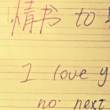 情书 to
I love y
no next